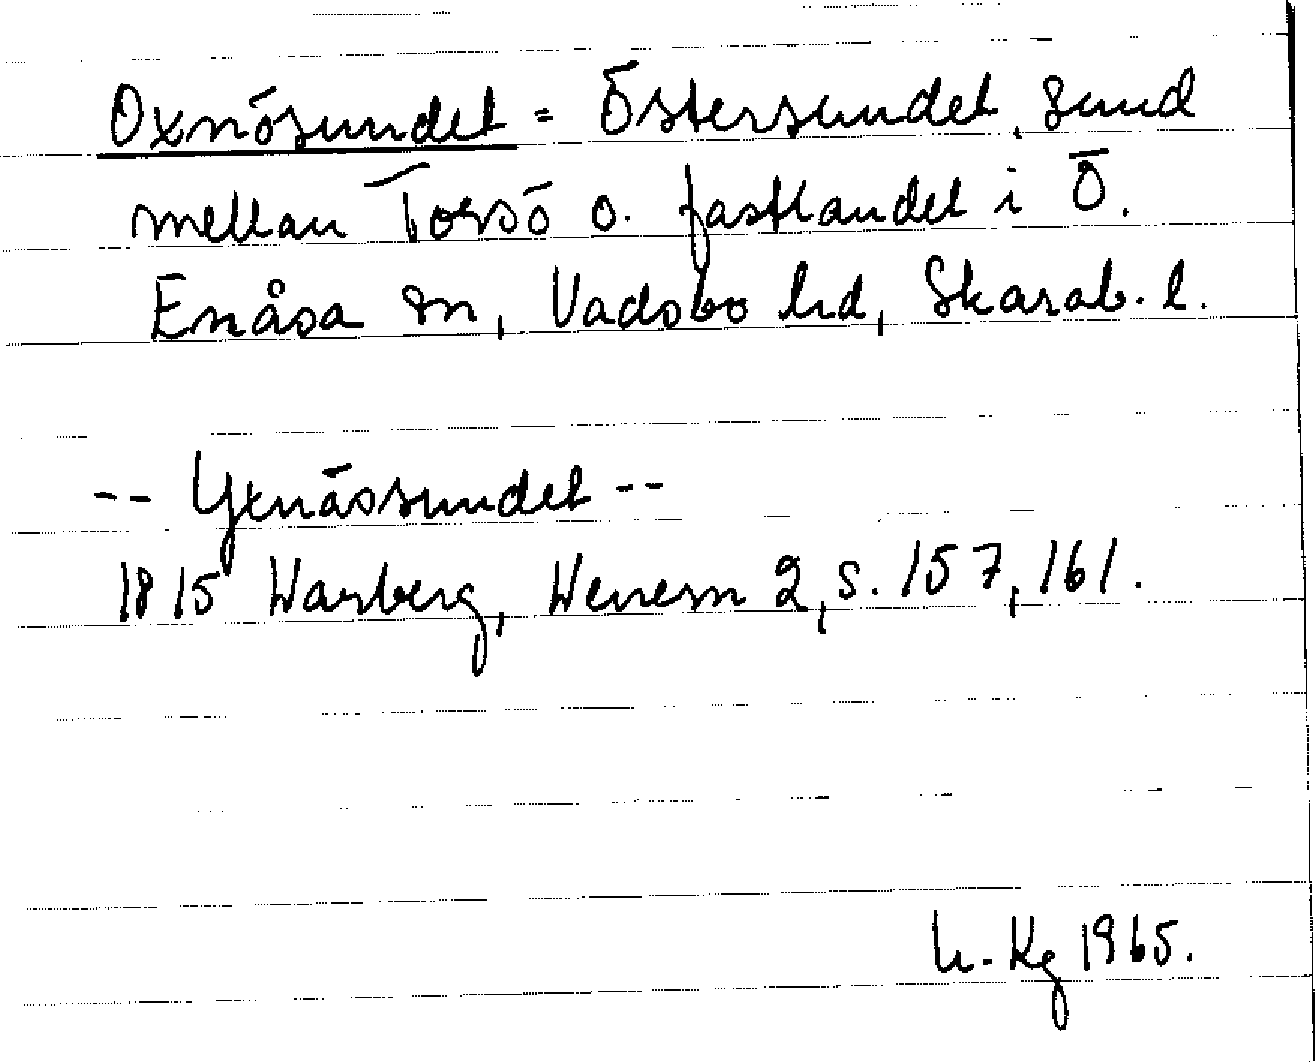 Oxnösundet = Östersundet, sund
mellan Torsö o. fastlandet i Ö.
Enåsa sn, Vadsbo hd, Skarab. l.
-- Yxnässundet --
1815 Warberg, Wenern 2, s. 157, 161.
Kg 1965.